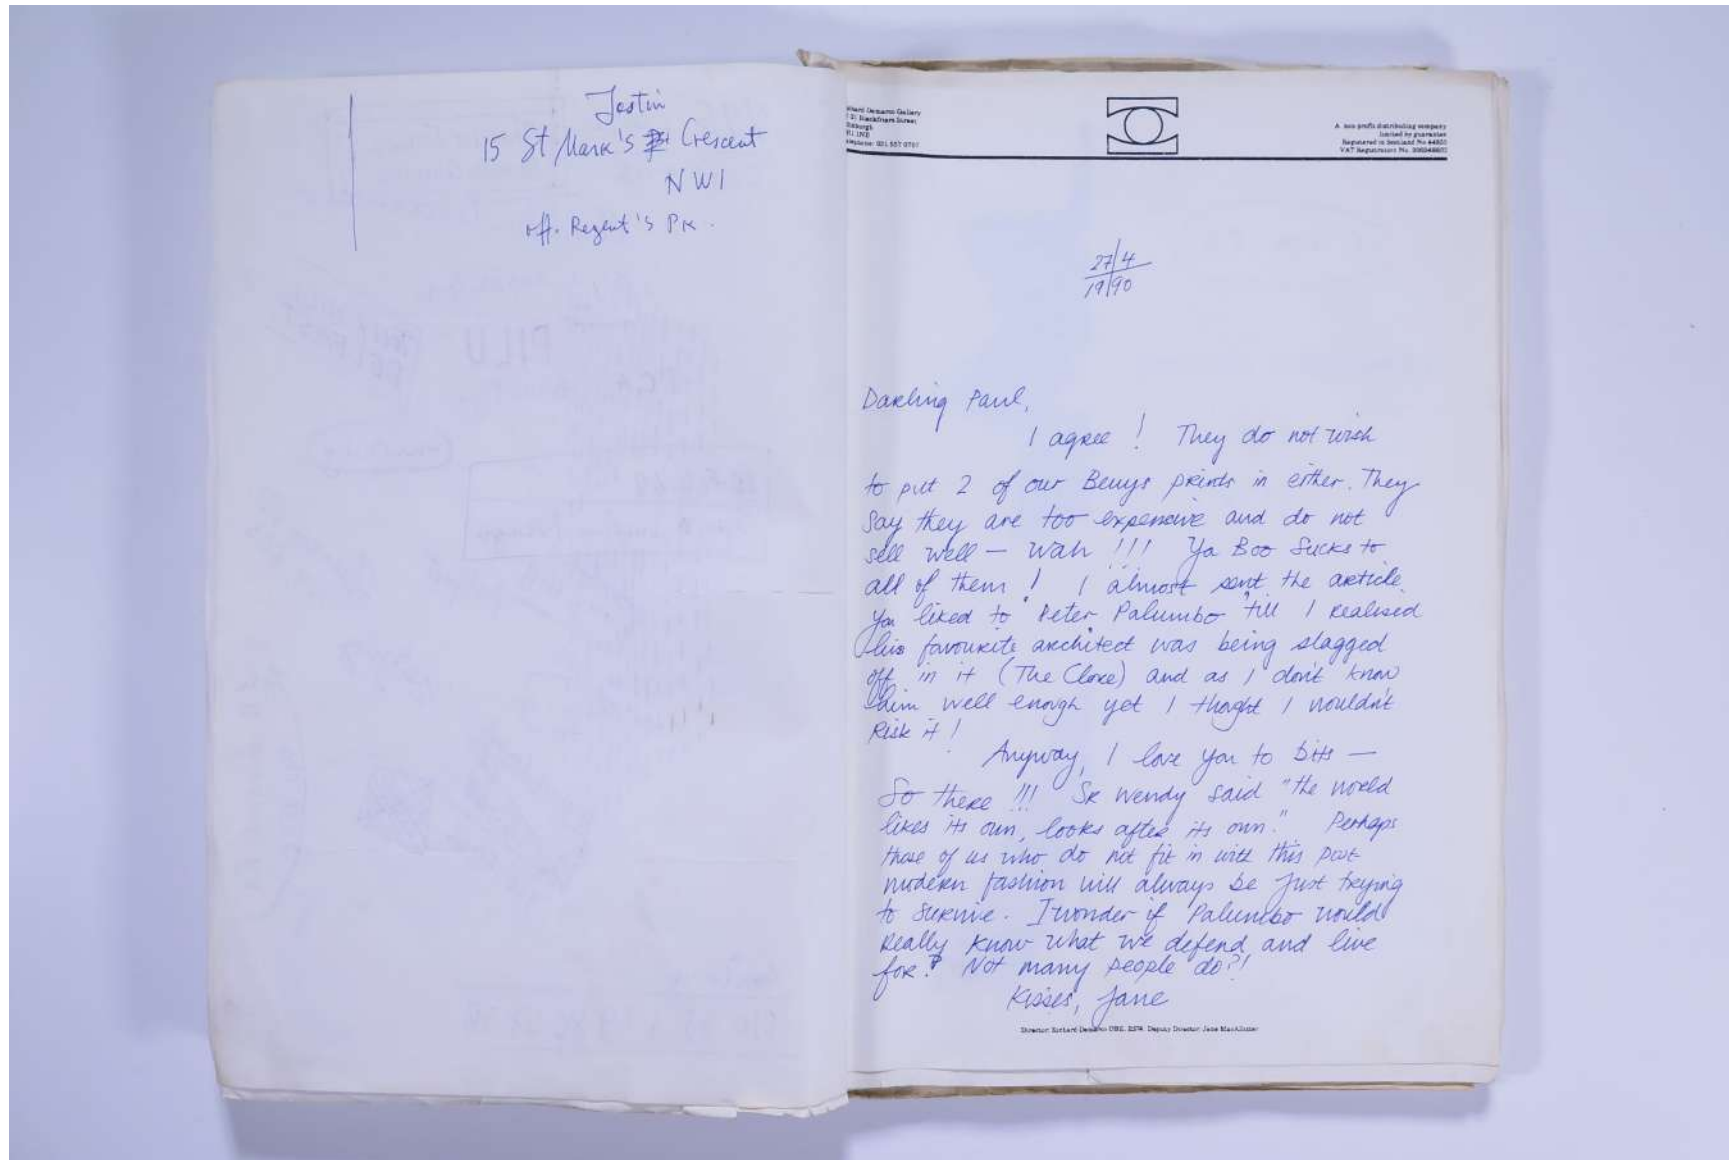 Jostin
15 St Mark's Crescent
NW1
off. Regent's Pk.
Richard Demarco Gallery
Blackfriars Street
EH1 1NB
Telephone: 031 557 0707
A non profit distributing company
limited by guarantee
Registered in Scotland No
VAT Registration No.
27/4
19/90
Darling Paul,
I agree! They do not wish
to put 2 of our Beuys prints in either. They
say they are too expensive and do not
sell well — Wah!!! Ya Boo Sucks to
all of them! I almost sent the article
you liked to Peter Palumbo 'till I realised
his favourite architect was being slagged
off in it (The Close) and as I don't know
him well enough yet I thoght I wouldn't
risk it!
Anyway, I love you to bits —
So there!!! Sr Wendy said "the world
likes its own, looks after its own." Perhaps
those of us who do not fit in with this post-
modern fashion will always be just trying
to survive. I wonder if Palumbo would
really know what we defend and live
for? Not many people do?!
Kisses, Jane
Director: Richard Demarco OBE, RSW. Deputy Director: Jane MacAllister